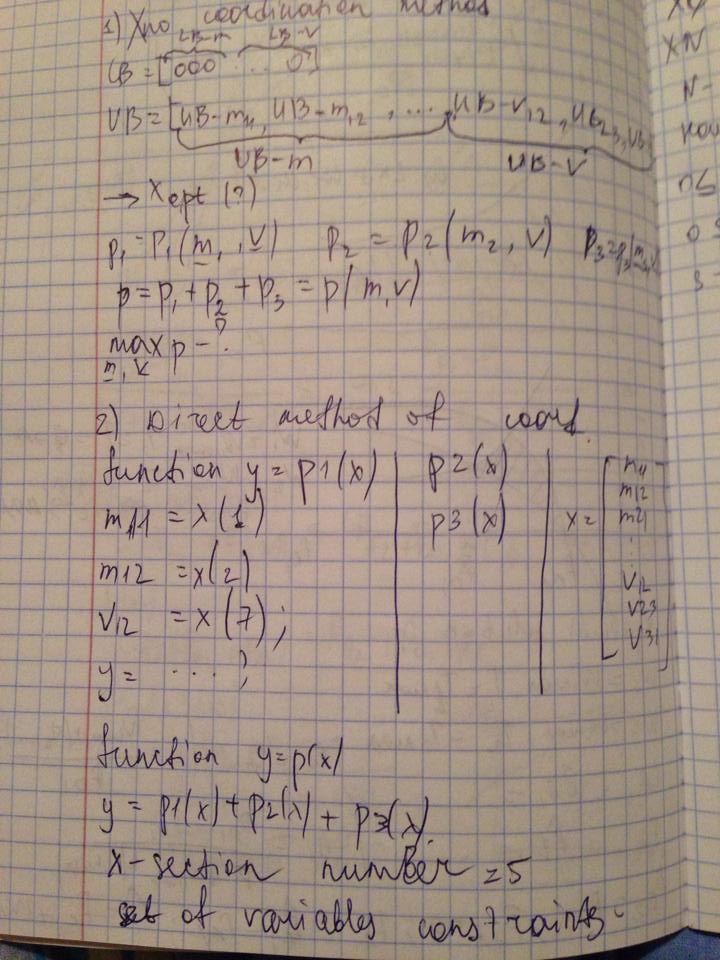 1) Xno coordination method
LB-m LB-v
LB = [000 ... 0]
UB = [UB-m11, UB-m12, ...., UB-v12, UB23, UB
UB-m UB-v
→ Xopt (?)
p1 = P1(m1, v) p2 = p2(m2, v) p3 = p3(m3, v)
p = p1 + p2 + p3 = p(m,v)
max p - ?
m, v
2) Direct method of coord.
function y = p1(x) | p2(x)
m11 = x(1) | p3(x) | x = [m11
m12
m21
⋮
m12 = x(2)
v12
v12 = x(7);
v23
v31]
y = .... ;
function y=p(x)
y = p1(x) + p2(x) + p3(x).
x-section number = 5
set of variables constraints -
XN
N-
0≤